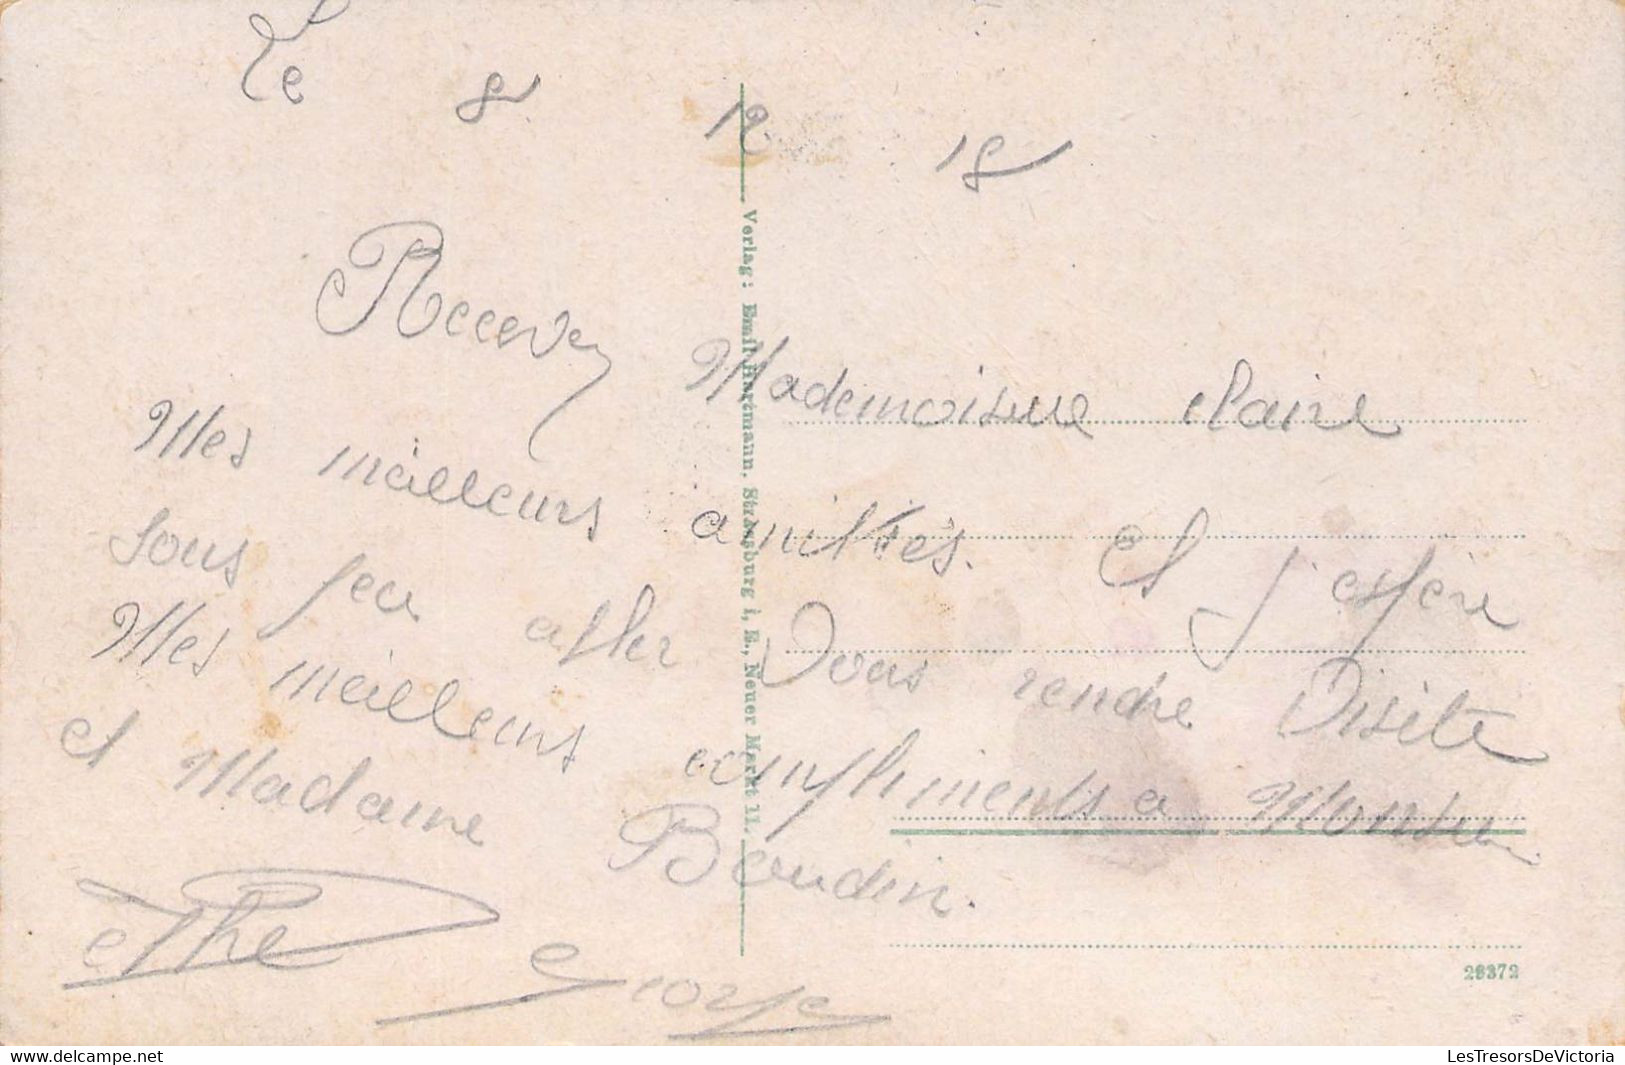 Le 8 12 18
Recevez Mademoiselle Claire
Mes meilleurs amitiés. et j'espère
sous peu aller vous rendre visite
Mes meilleurs compliments a Monsieur
et Madame Boudin.
George
Verlag: Emil Hartmann, Strassburg i. E., Neuer Markt 11.
28372
LesTresorsDeVictoria